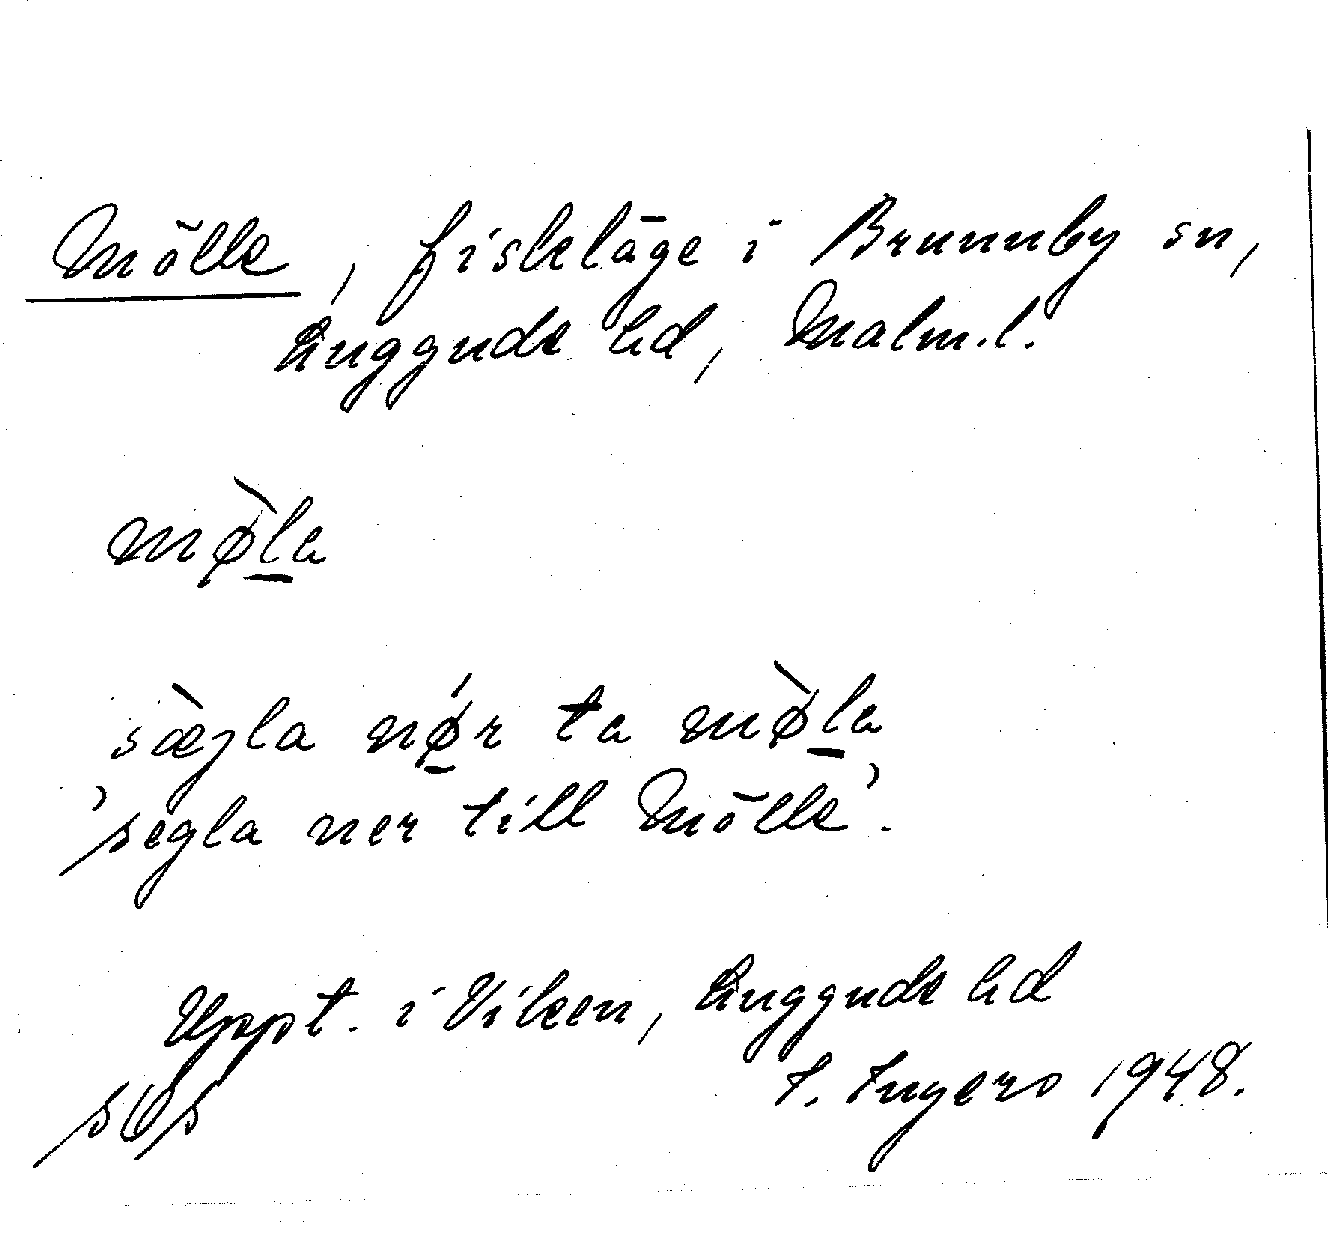 Mölle, fiskeläge i Brunnby sn,
Luggude hd, Malm.l.
mø̀l̲a
sæ̀jla nǿ̲r ta mø̀l̲a
'segla ner till Mölle'.
Uppt. i Viken, Luggude hd
I. Ingers 1948.